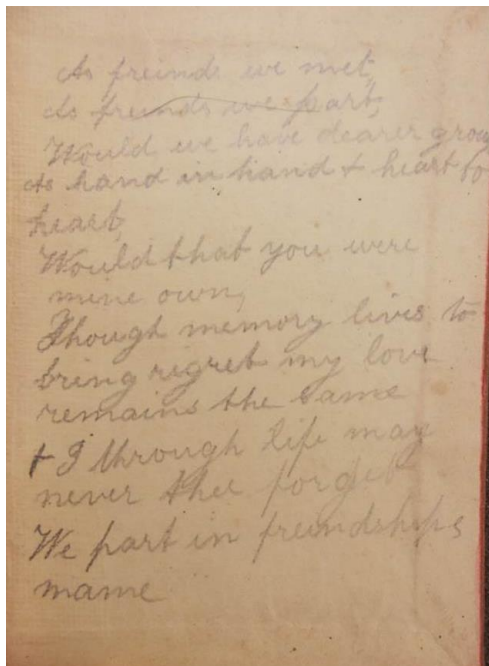 As freinds we met,
As freinds we part,
Would we have dearer grow
As hand in hand + heart to
heart,
Would that you were
mine own,
Though memory lives to
bring regret my love
remains the same
+ I through life may
never thee forget
We part in freindships
mame